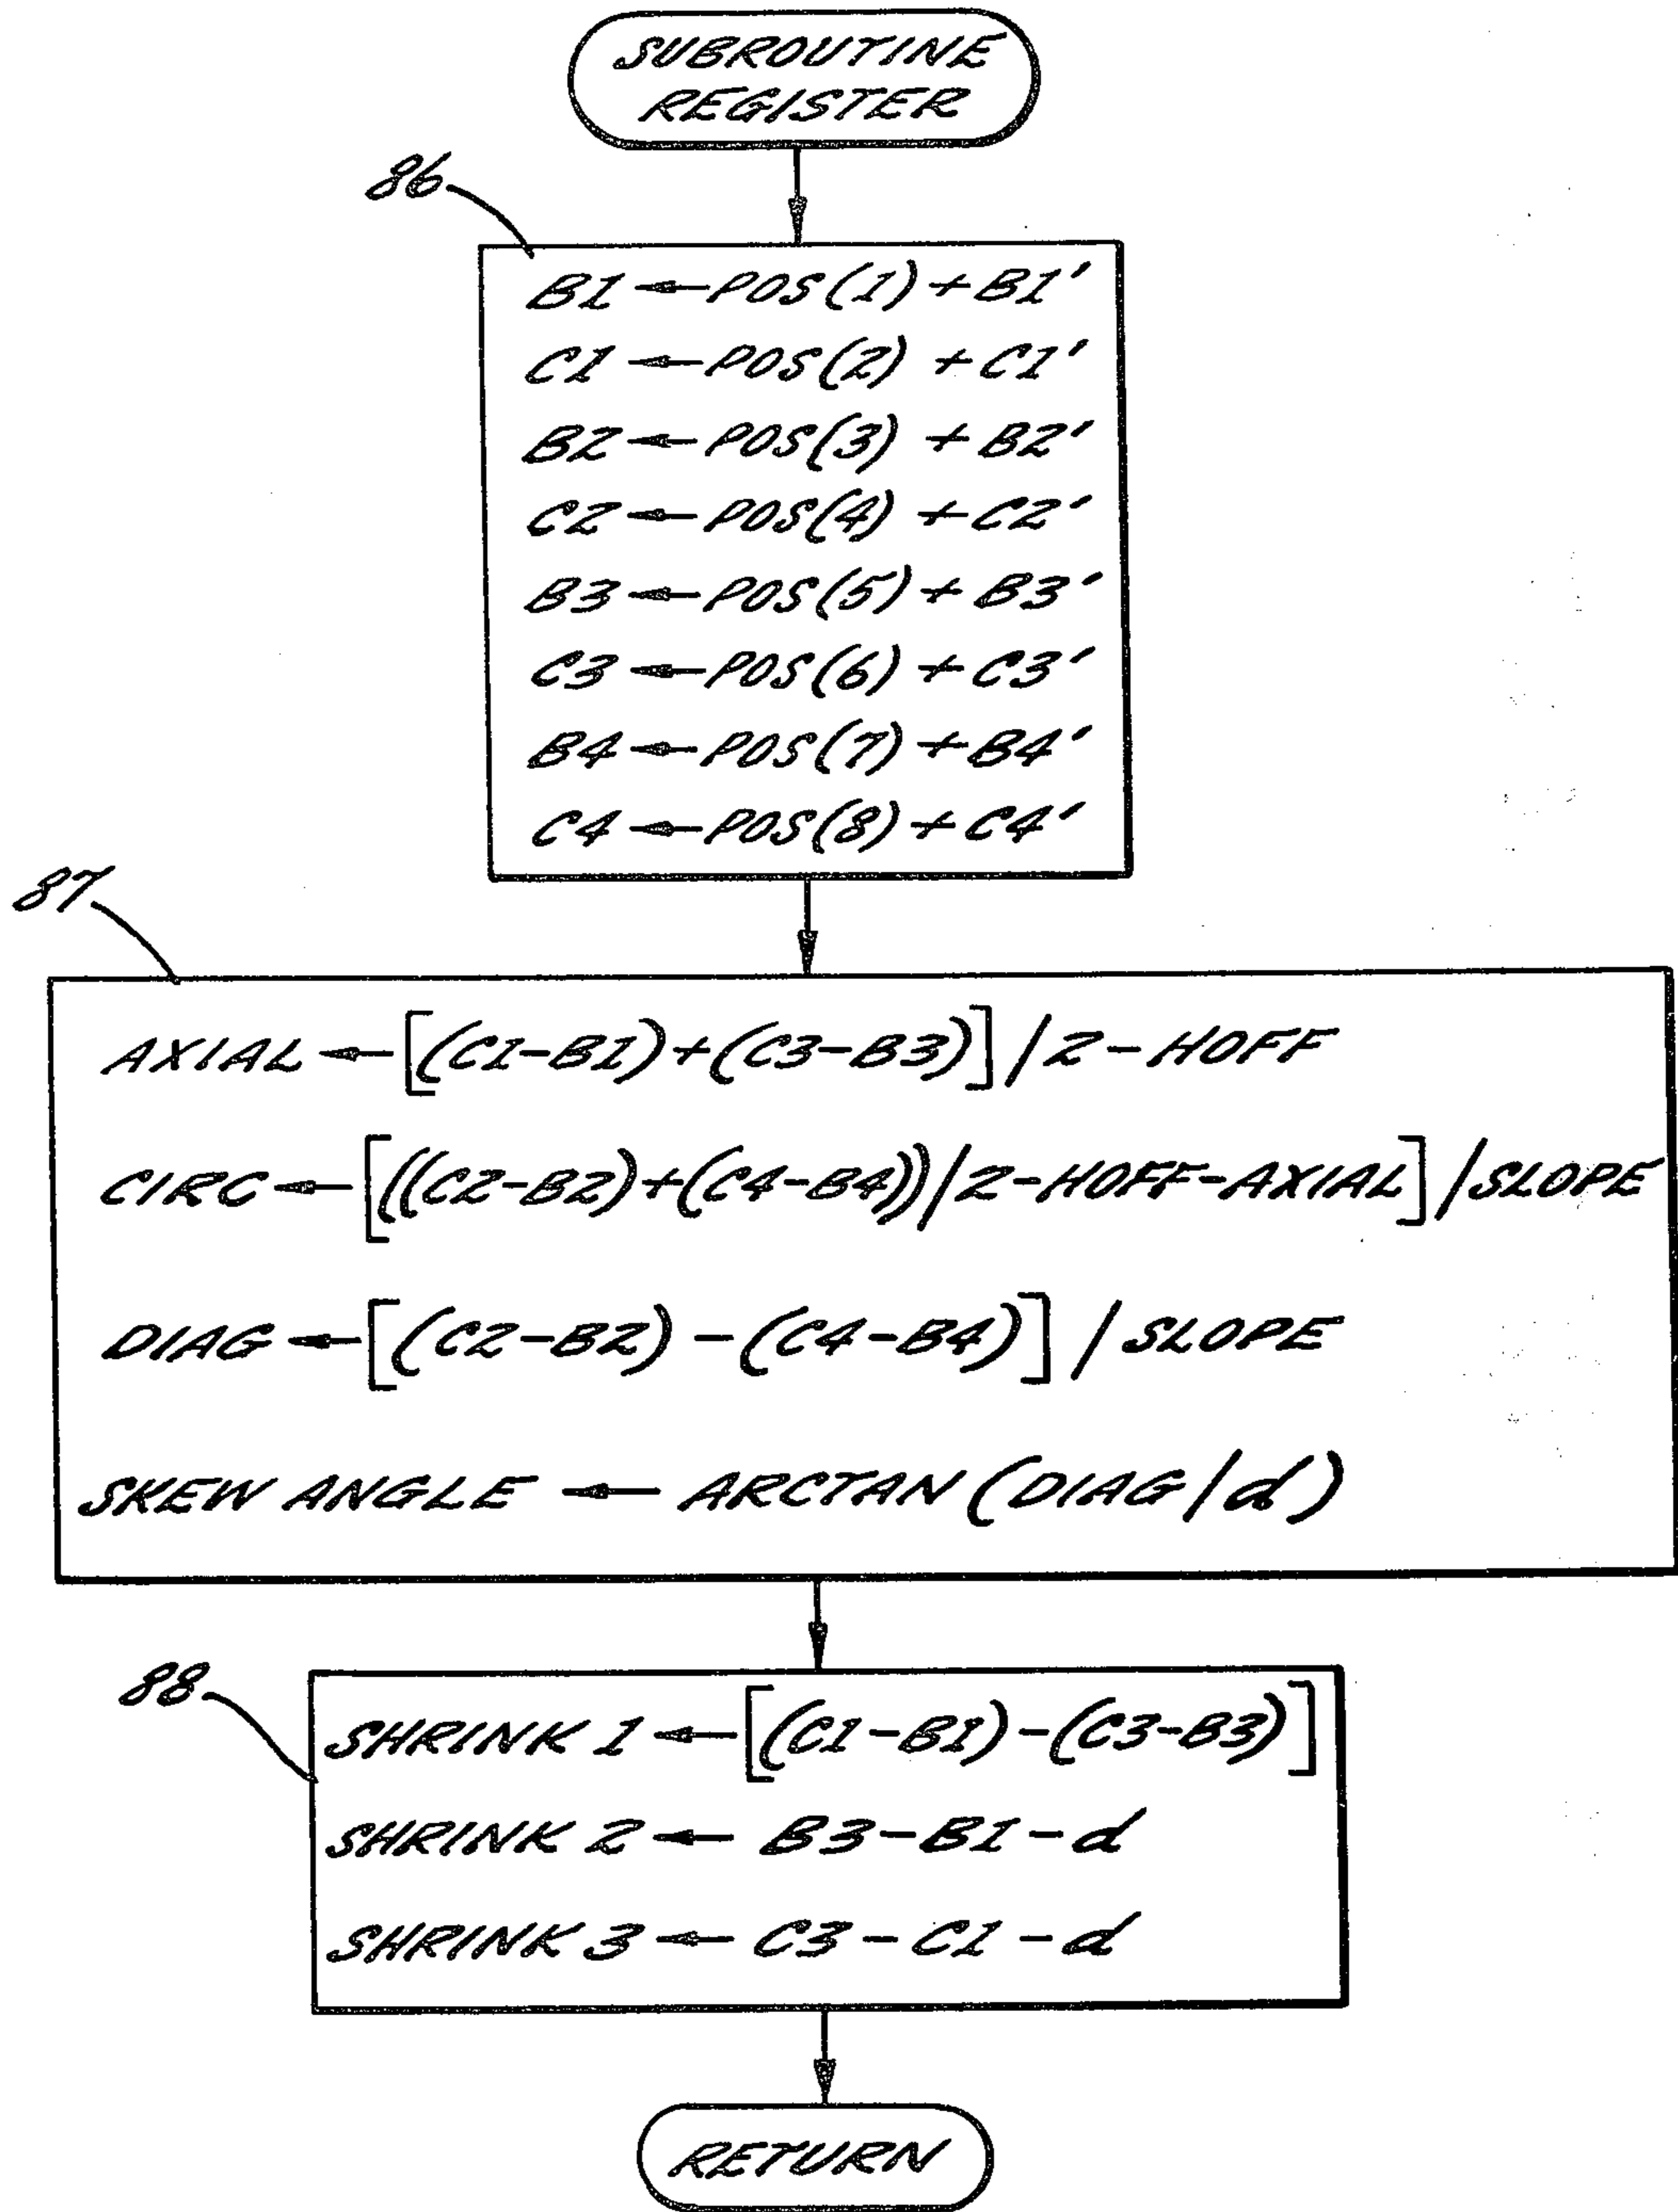 SUBROUTINE
REGISTER
86
B1←POS(1)+B1'
C1←POS(2)+C1'
B2←POS(3)+B2'
C2←POS(4)+C2'
B3←POS(5)+B3'
C3←POS(6)+C3'
B4←POS(7)+B4'
C4←POS(8)+C4'
87
AXIAL←[(C1-B1)+(C3-B3)]/2-HOFF
CIRC←[((C2-B2)+(C4-B4))/2-HOFF-AXIAL]/SLOPE
DIAG←[(C2-B2)-(C4-B4)]/SLOPE
SKEW ANGLE ← ARCTAN(DIAG/d)
88
SHRINK 1←[(C1-B1)-(C3-B3)]
SHRINK 2← B3-B1-d
SHRINK 3← C3-C1-d
RETURN